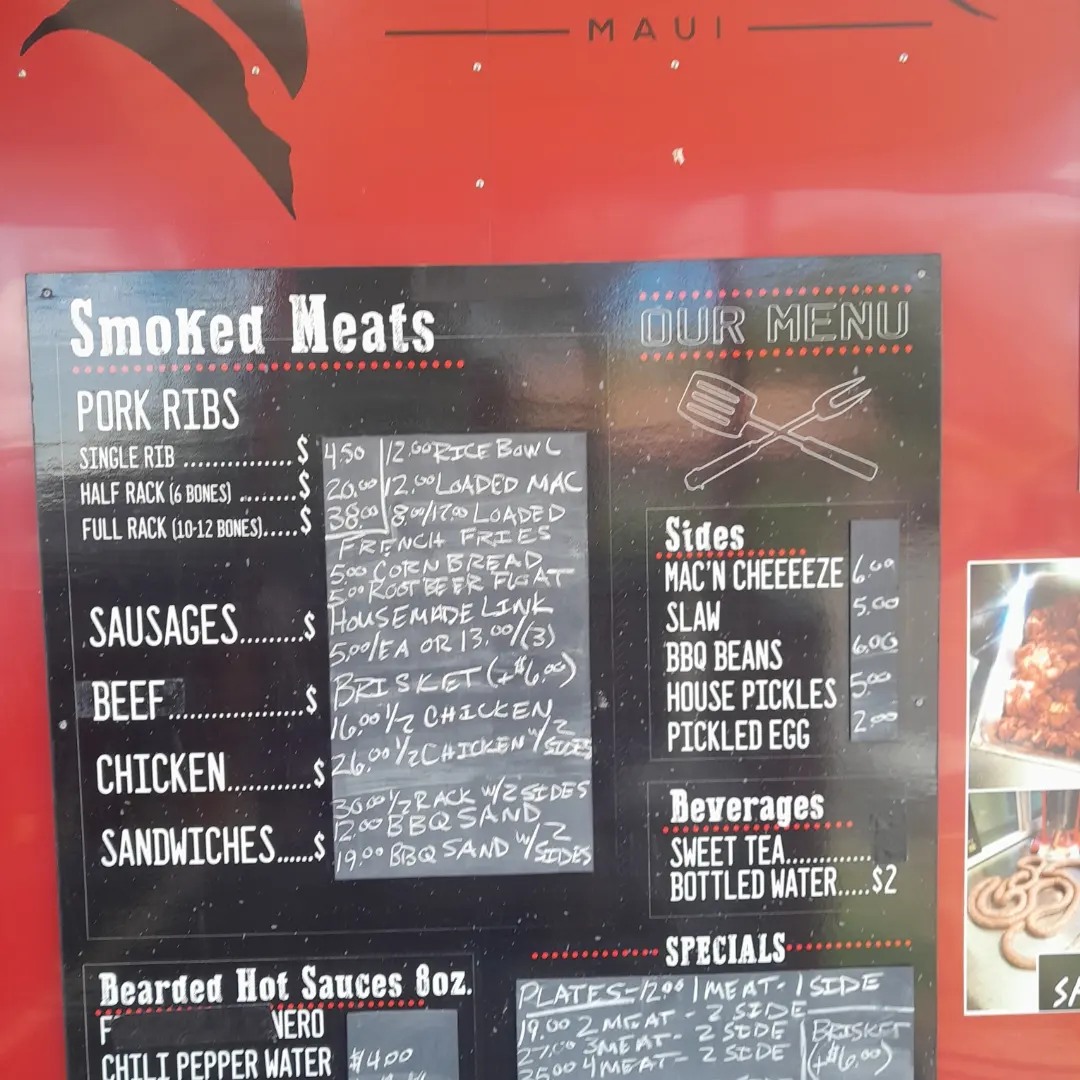 MAUI
Smoked Meats
PORK RIBS
SINGLE RIB ................$ 4.50
HALF RACK (6 BONES) .........$ 20.00
FULL RACK (10-12 BONES).....$ 38.00
12.00 RICE BOWL
12.00 LOADED MAC
LOADED
FRENCH FRIES
5.00 CORN BREAD
5.00 ROOT BEER FLOAT
SAUSAGES.........$ HOUSEMADE LINK
5.00/EA OR 13.00/(3)
BEEF....................$ BRISKET (+$6.00)
16.00 1/2 CHICKEN
CHICKEN............$ 26.00 1/2 CHICKEN W/2 SIDES
30.00 1/2 RACK W/2 SIDES
12.00 BBQ SAND
SANDWICHES......$ 19.00 BBQ SAND W/2 SIDES
OUR MENU
Sides
MAC'N CHEEEEZE 6.00
SLAW 5.00
BBQ BEANS 6.00
HOUSE PICKLES 5.00
PICKLED EGG 2.00
Beverages
SWEET TEA.............
BOTTLED WATER.....$2
Bearded Hot Sauces 8oz.
F NERO
CHILI PEPPER WATER $4.00
SPECIALS
PLATES-12.00 1 MEAT- 1 SIDE
19.00 2 MEAT - 2 SIDE
27.00 3 MEAT- 2 SIDE
4 MEAT- 2 SIDE
BRISKET
(+$6.00)